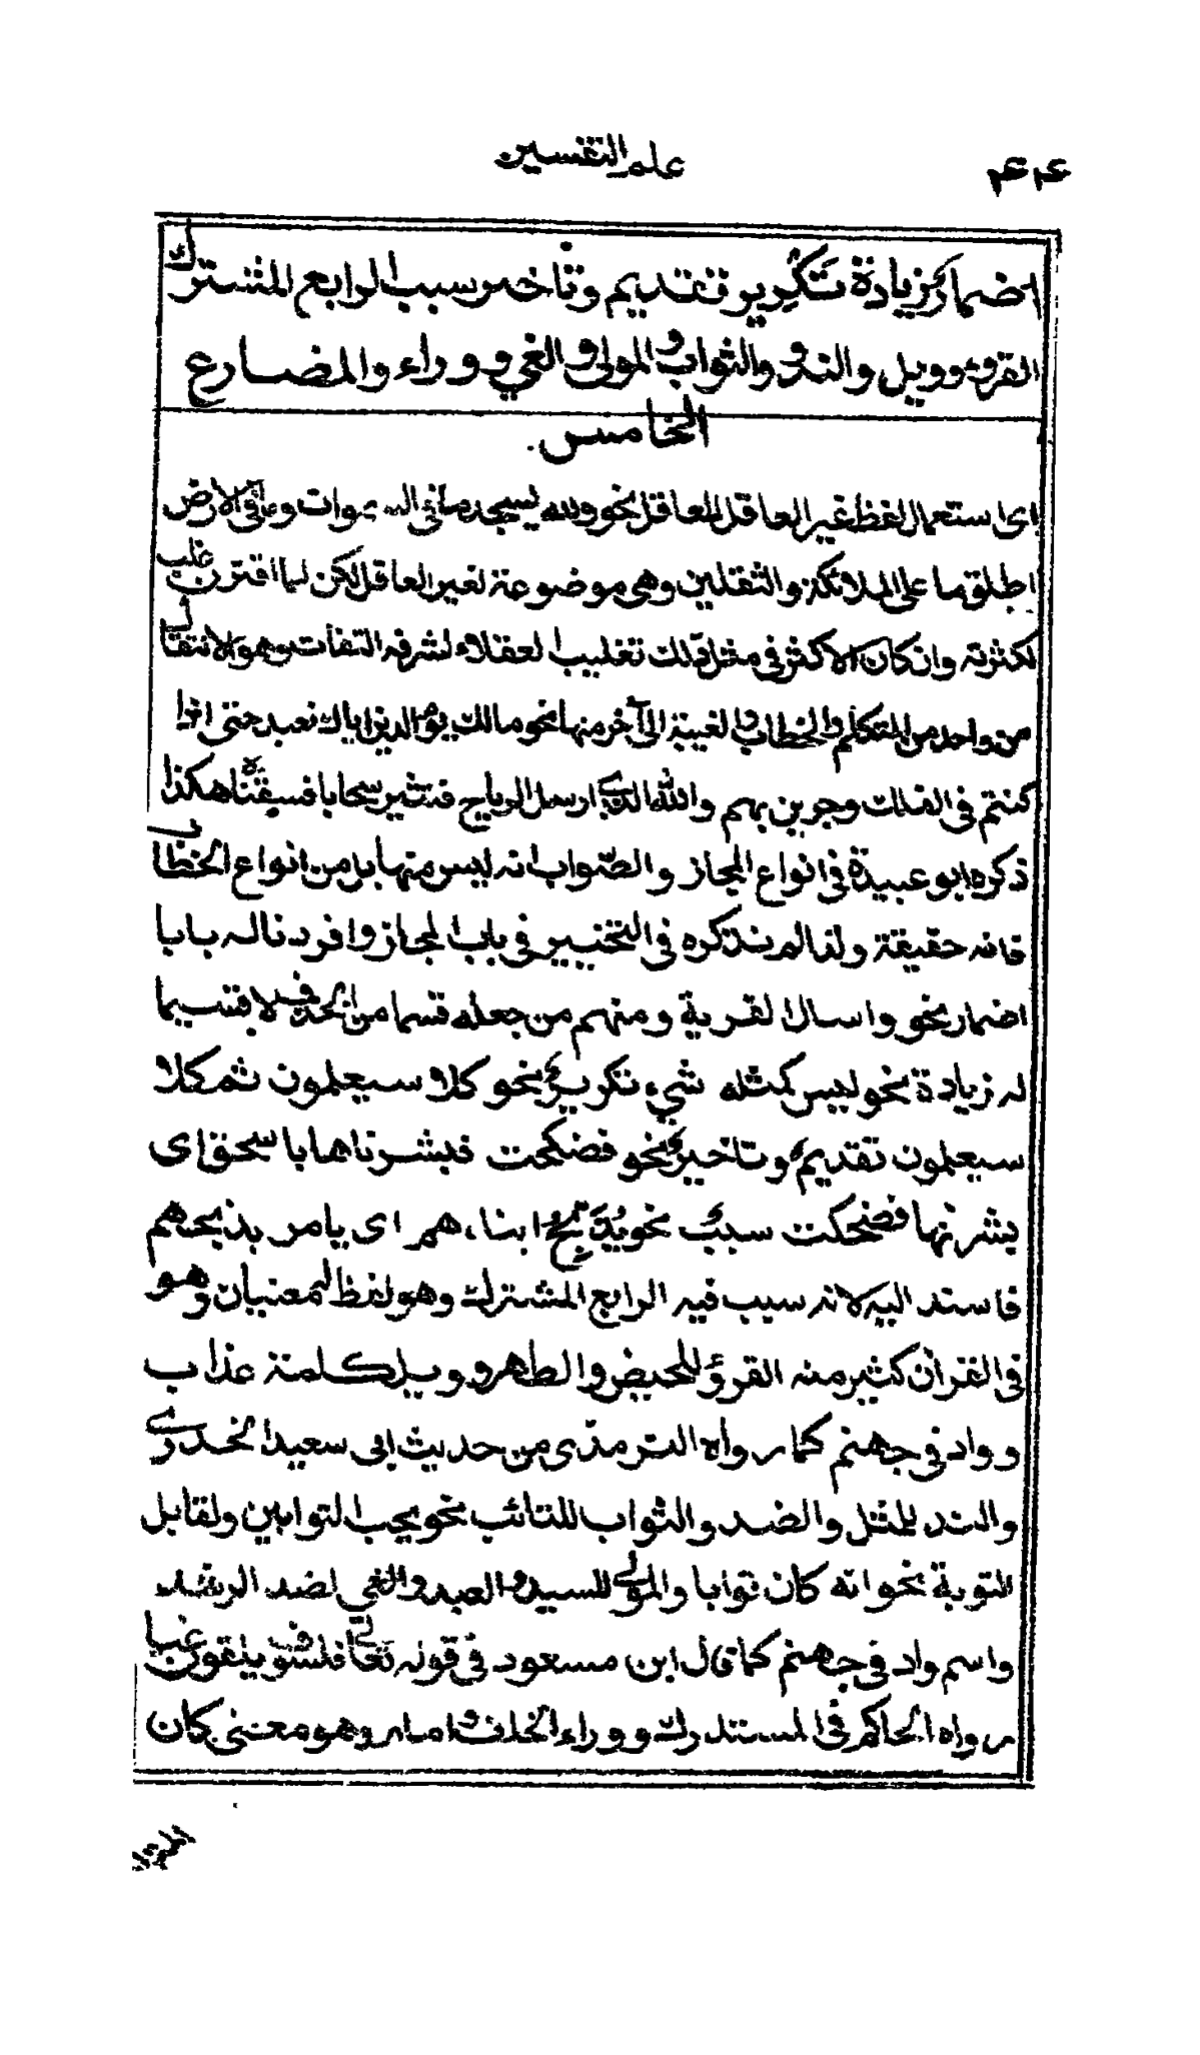 ٤٤ علم التفسير
اضمار زيادة تكرير تقديم وتاخير سبب الرابع المشترك
القرؤ وويل والند والتواب والمولى والغي ووراء والمضارع
الخامس
اى استعمال لفظ غير العاقل للعاقل نحو ولله يسجد ما فى السموات وما فى الارض
اطلق ما على الملائكة والثقلين وهى موضوعة لغير العاقل لكن لما اقترن غلب
لكثرته وان كان الاكثر فى مثل ذلك تغليب العقلاء لشرفه التفات وهو الانتقال
من واحد من المتكلم والخطاب والغيبة الى آخر منها نحو مالك يوم الدين اياك نعبد حتى اذا
كنتم فى الفلك وجرين بهم والله الذى ارسل الرياح فتثير سحابا فسقناه هكذا
ذكره ابو عبيدة فى انواع المجاز والصواب انه ليس منها بل من انواع الخطاب
فانه حقيقة ولذا لم نذكره فى التحبير فى باب المجاز وافردنا له بابا
اضمار نحو واسال القرية ومنهم من جعله قسما من الحذف لا قسيما
له زيادة نحو ليس كمثله شيء تكرير نحو كلا سيعلمون ثم كلا
سيعلمون تقديم وتاخير نحو فضحكت فبشرناها باسحق اى
بشرنها فضحكت سبب نحو يذبح ابناءهم اى يامر بذبحهم
فاسند اليه لانه سبب فيه الرابع المشترك وهو لفظ له معنيان وهو
فى القرآن كثير منه القرؤ للحيض والطهر وويل كلمة عذاب
وواد فى جهنم كما رواه الترمذى من حديث ابى سعيد الخدري
والند للمثل والضد والتواب للتائب نحو يحب التوابين ولقابل
التوبة نحو انه كان توابا والمولى للسيد والعبد والغي لضد الرشد
واسم واد فى جهنم كما قال ابن مسعود فى قوله تعالى فسوف يلقون غيا
رواه الحاكم فى المستدرك ووراء لخلف وامام وهو معنى كان